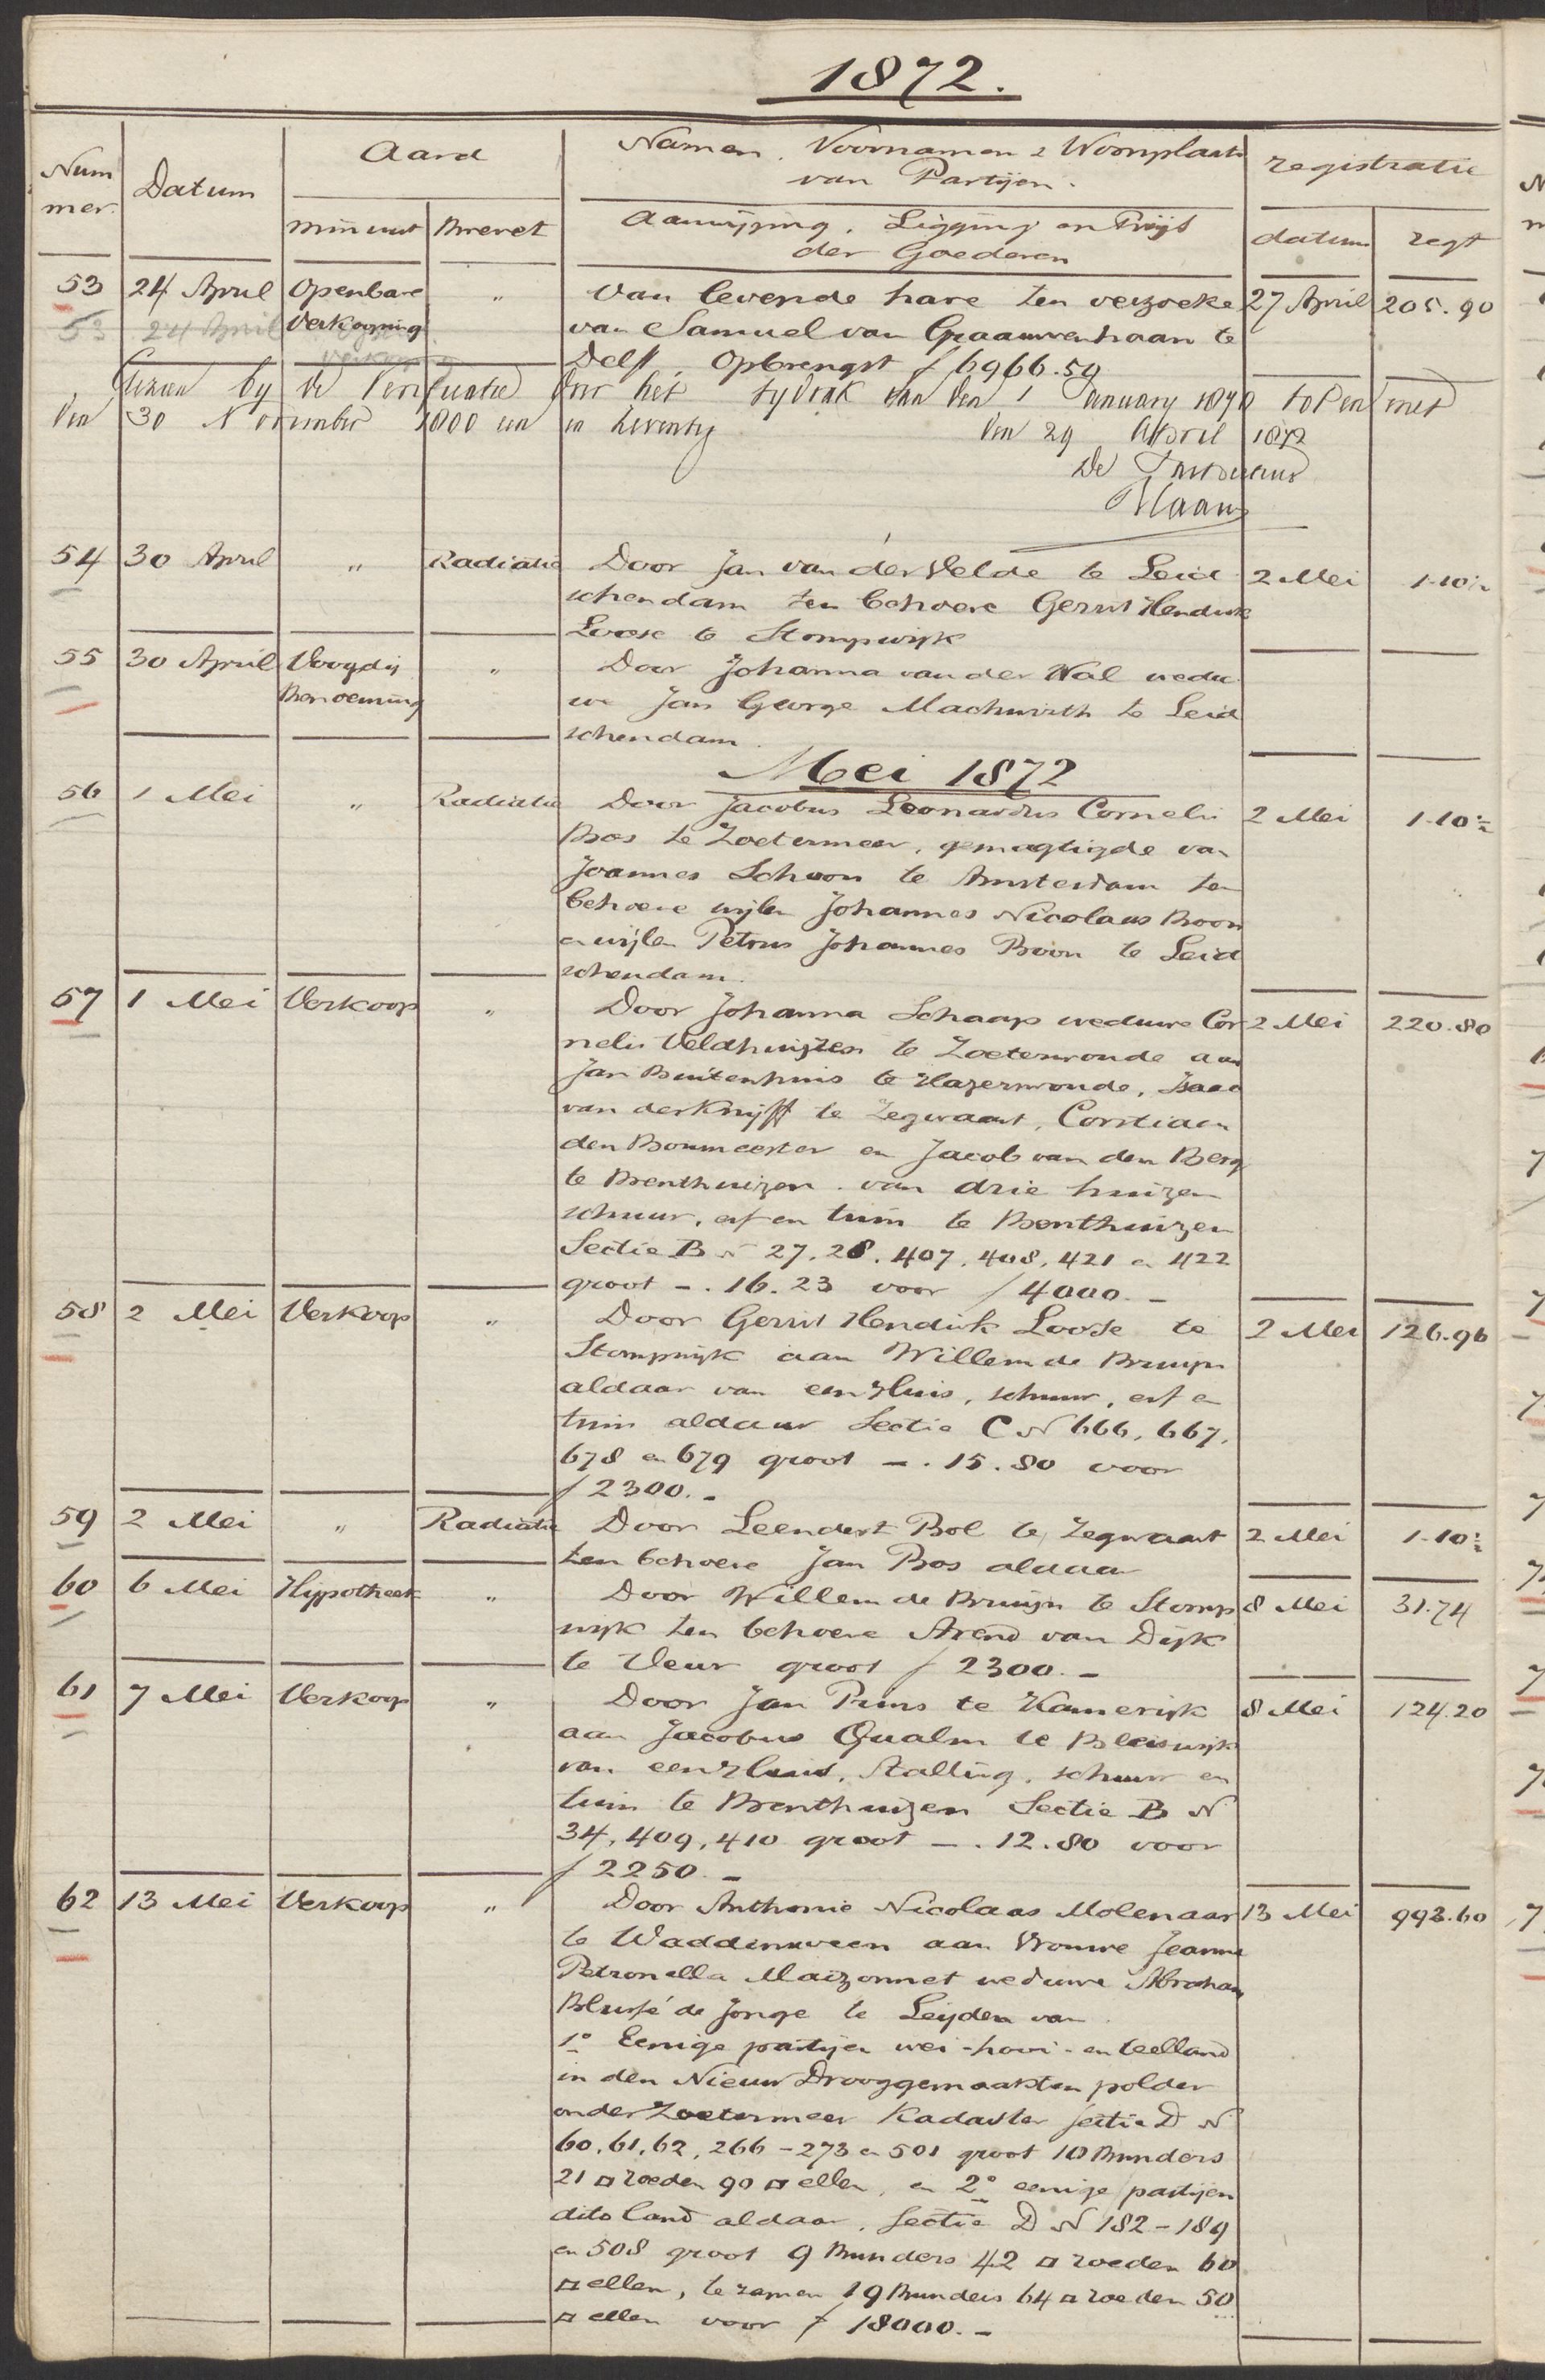 1872.
Num mer. Datum Aard Namen, Voornamen & Woonplaats van Partijen. registratie
minuut Brevet Aanwijzing, Ligging en Prijs der Goederen datum regt
53 24 April Openbare " Van levende have ten verzoeke 27 April 205.90
53 24 April Verkooping van Samuel van Graauwenhaan te
Delft. Opbrengst f 6966.59
Gezien bij de Verificatie over het tydvak van den 1 January 1870 tot en met
den 30 November 1800 een en zeventig den 29 April 1872
De
54 30 April " Radiatie Door Jan van der Velde te Leid 2 Mei 1.10½
schendam ten behoeve Gerrit Hendrik
Loose te Stompwijk
55 30 April Voogdij " Door Johanna van der Wal wedu
Benoeming we Jan George Machwirth te Leid
schendam.
Mei 1872
56 1 Mei " Radiatie Door Jacobus Leonardus Cornelis 2 Mei 1.10½
Bos te Zoetermeer, gemagtigde van
Joannes Schoon te Amsterdam ten
behoeve wijlen Johannes Nicolaas Boon
en wijlen Petrus Johannes Boon te Leid
schendam.
57 1 Mei Verkoop " Door Johanna Schaap weduwe Cor 2 Mei 220.80
nelis Veldhuijzen te Zoeterwoude aan
Jan Buitenhuis te Hazerswoude, Isaac
van der Knijff te Zegwaart, Corstiaan
den Boumeester en Jacob van den Berg
te Benthuizen van drie huizen
schuur, erf en tuin te Benthuizen
Sectie B N 27, 28, 407, 408, 421 en 422
groot -. 16. 23 voor f 4000.-
58 2 Mei Verkoop " Door Gerrit Hendrik Loose te 2 Mei 126.96
Stompwijk aan Willem de Bruijn
aldaar van een Huis, schuur, erf en
tuin aldaar Sectie C N 666, 667,
678 en 679 groot -. 15. 80 voor
f 2300.-
59 2 Mei " Radiatie Door Leendert Bol te Zegwaart 2 Mei 1.10½
ten behoeve Jan Bos aldaar
60 6 Mei Hypotheek " Door Willem de Bruijn te Stomp 8 Mei 31.74
wijk ten behoeve Arend van Dijk
te Veur groot f 2300.-
61 7 Mei Verkoop " Door Jan Prins te Kamerijk 8 Mei 124.20
aan Jacobus Qualm te Bleiswijk
van een Huis, Stalling, schuur en
tuin te Benthuizen Sectie B N
34, 409, 410 groot -. 12. 80 voor
f 2250.-
62 13 Mei Verkoop " Door Anthonie Nicolaas Molenaar 13 Mei 993.60
te Waddinxveen aan Vrouwe Jeanne
Petronella Maizonnet weduwe Abraham
Blussé de Jonge te Leijden van
1° Eenige partijen wei-hooi-en teelland
in den Nieuw Drooggemaakten polder
onder Zoetermeer Kadaster sectie D N
60, 61, 62, 266-273 en 501 groot 10 Bunders
21 □ roeden 90 □ ellen, en 2° eenige partijen
dito land aldaar, sectie D N 182-189
en 508 groot 9 Bunders 42 □ roeden 60
□ ellen, te zamen 19 Bunders 64 □ roeden 50
□ ellen voor f 18000.-